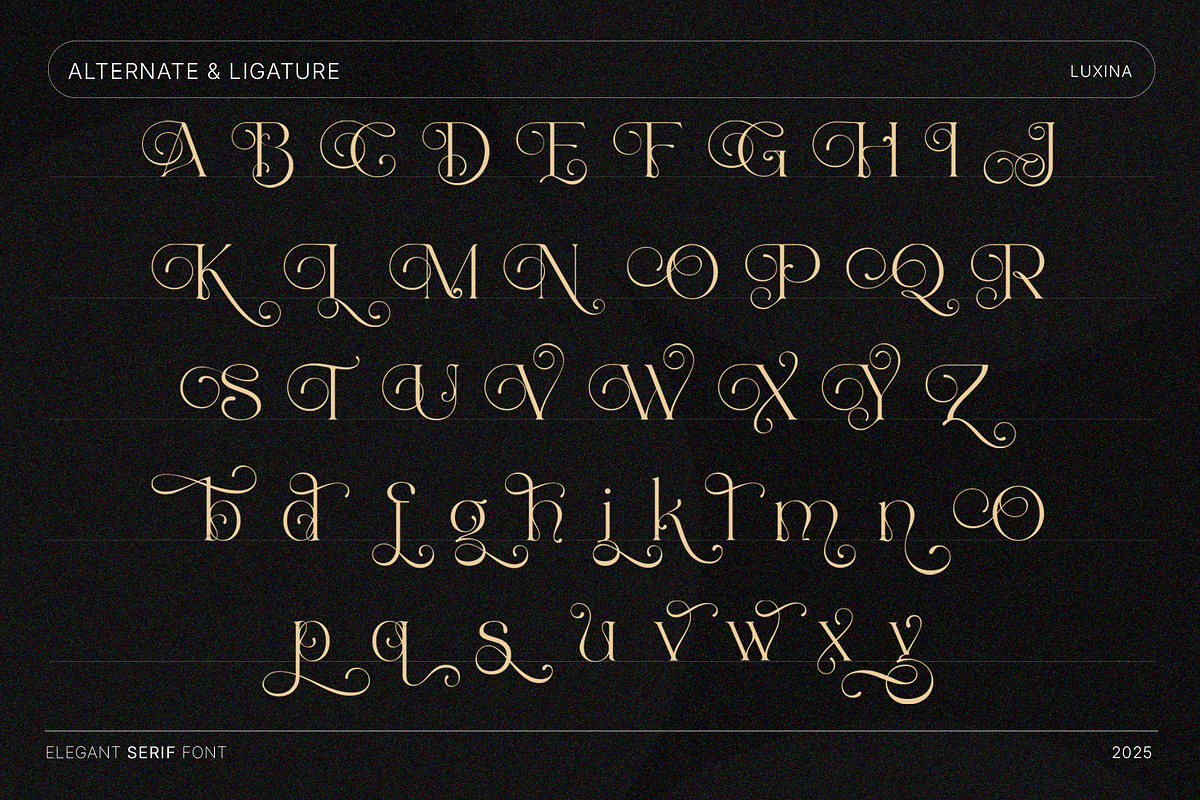 ALTERNATE & LIGATURE
LUXINA
A B C D E F G H I J
K L M N O P Q R
S T U V W X Y Z
b d f g h j k l m n o
p q s u v w x y
ELEGANT SERIF FONT
2025